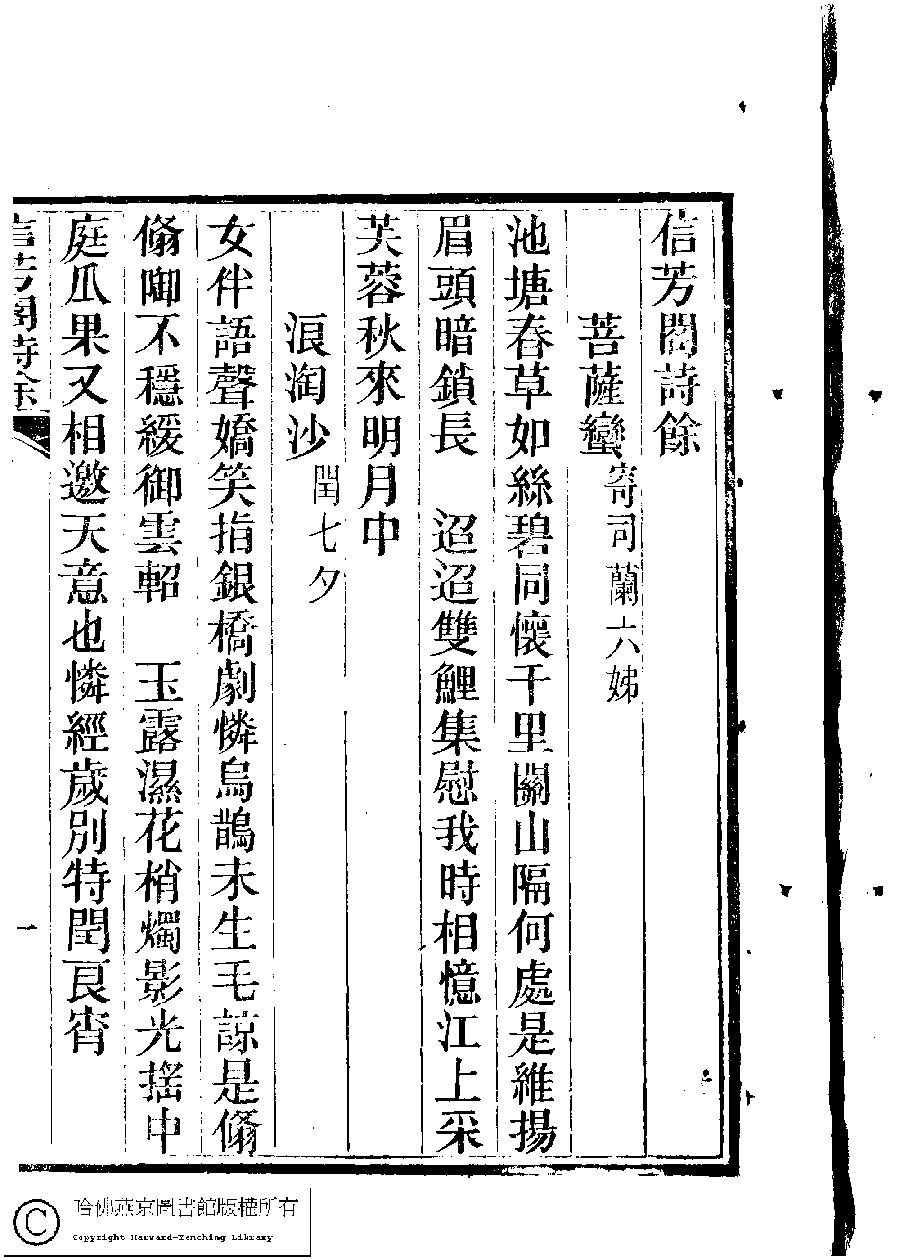 信芳閣詩餘
菩薩蠻 寄司蘭六姊
池塘春草如絲碧同懷千里關山隔何處是維揚
眉頭暗鎖長　迢迢雙鯉集慰我時相憶江上采
芙蓉秋來明月中
浪淘沙 閏七夕
女伴語聲嬌笑指銀橋劇憐烏鵲未生毛諒是翛
翛啣不穩緩御雲軺　玉露濕花梢燭影光搖中
庭瓜果又相邀天意也憐經歲別特閏良宵
信芳閣詩餘
一
哈佛燕京圖書館版權所有
Copyright Harvard-Yenching Library